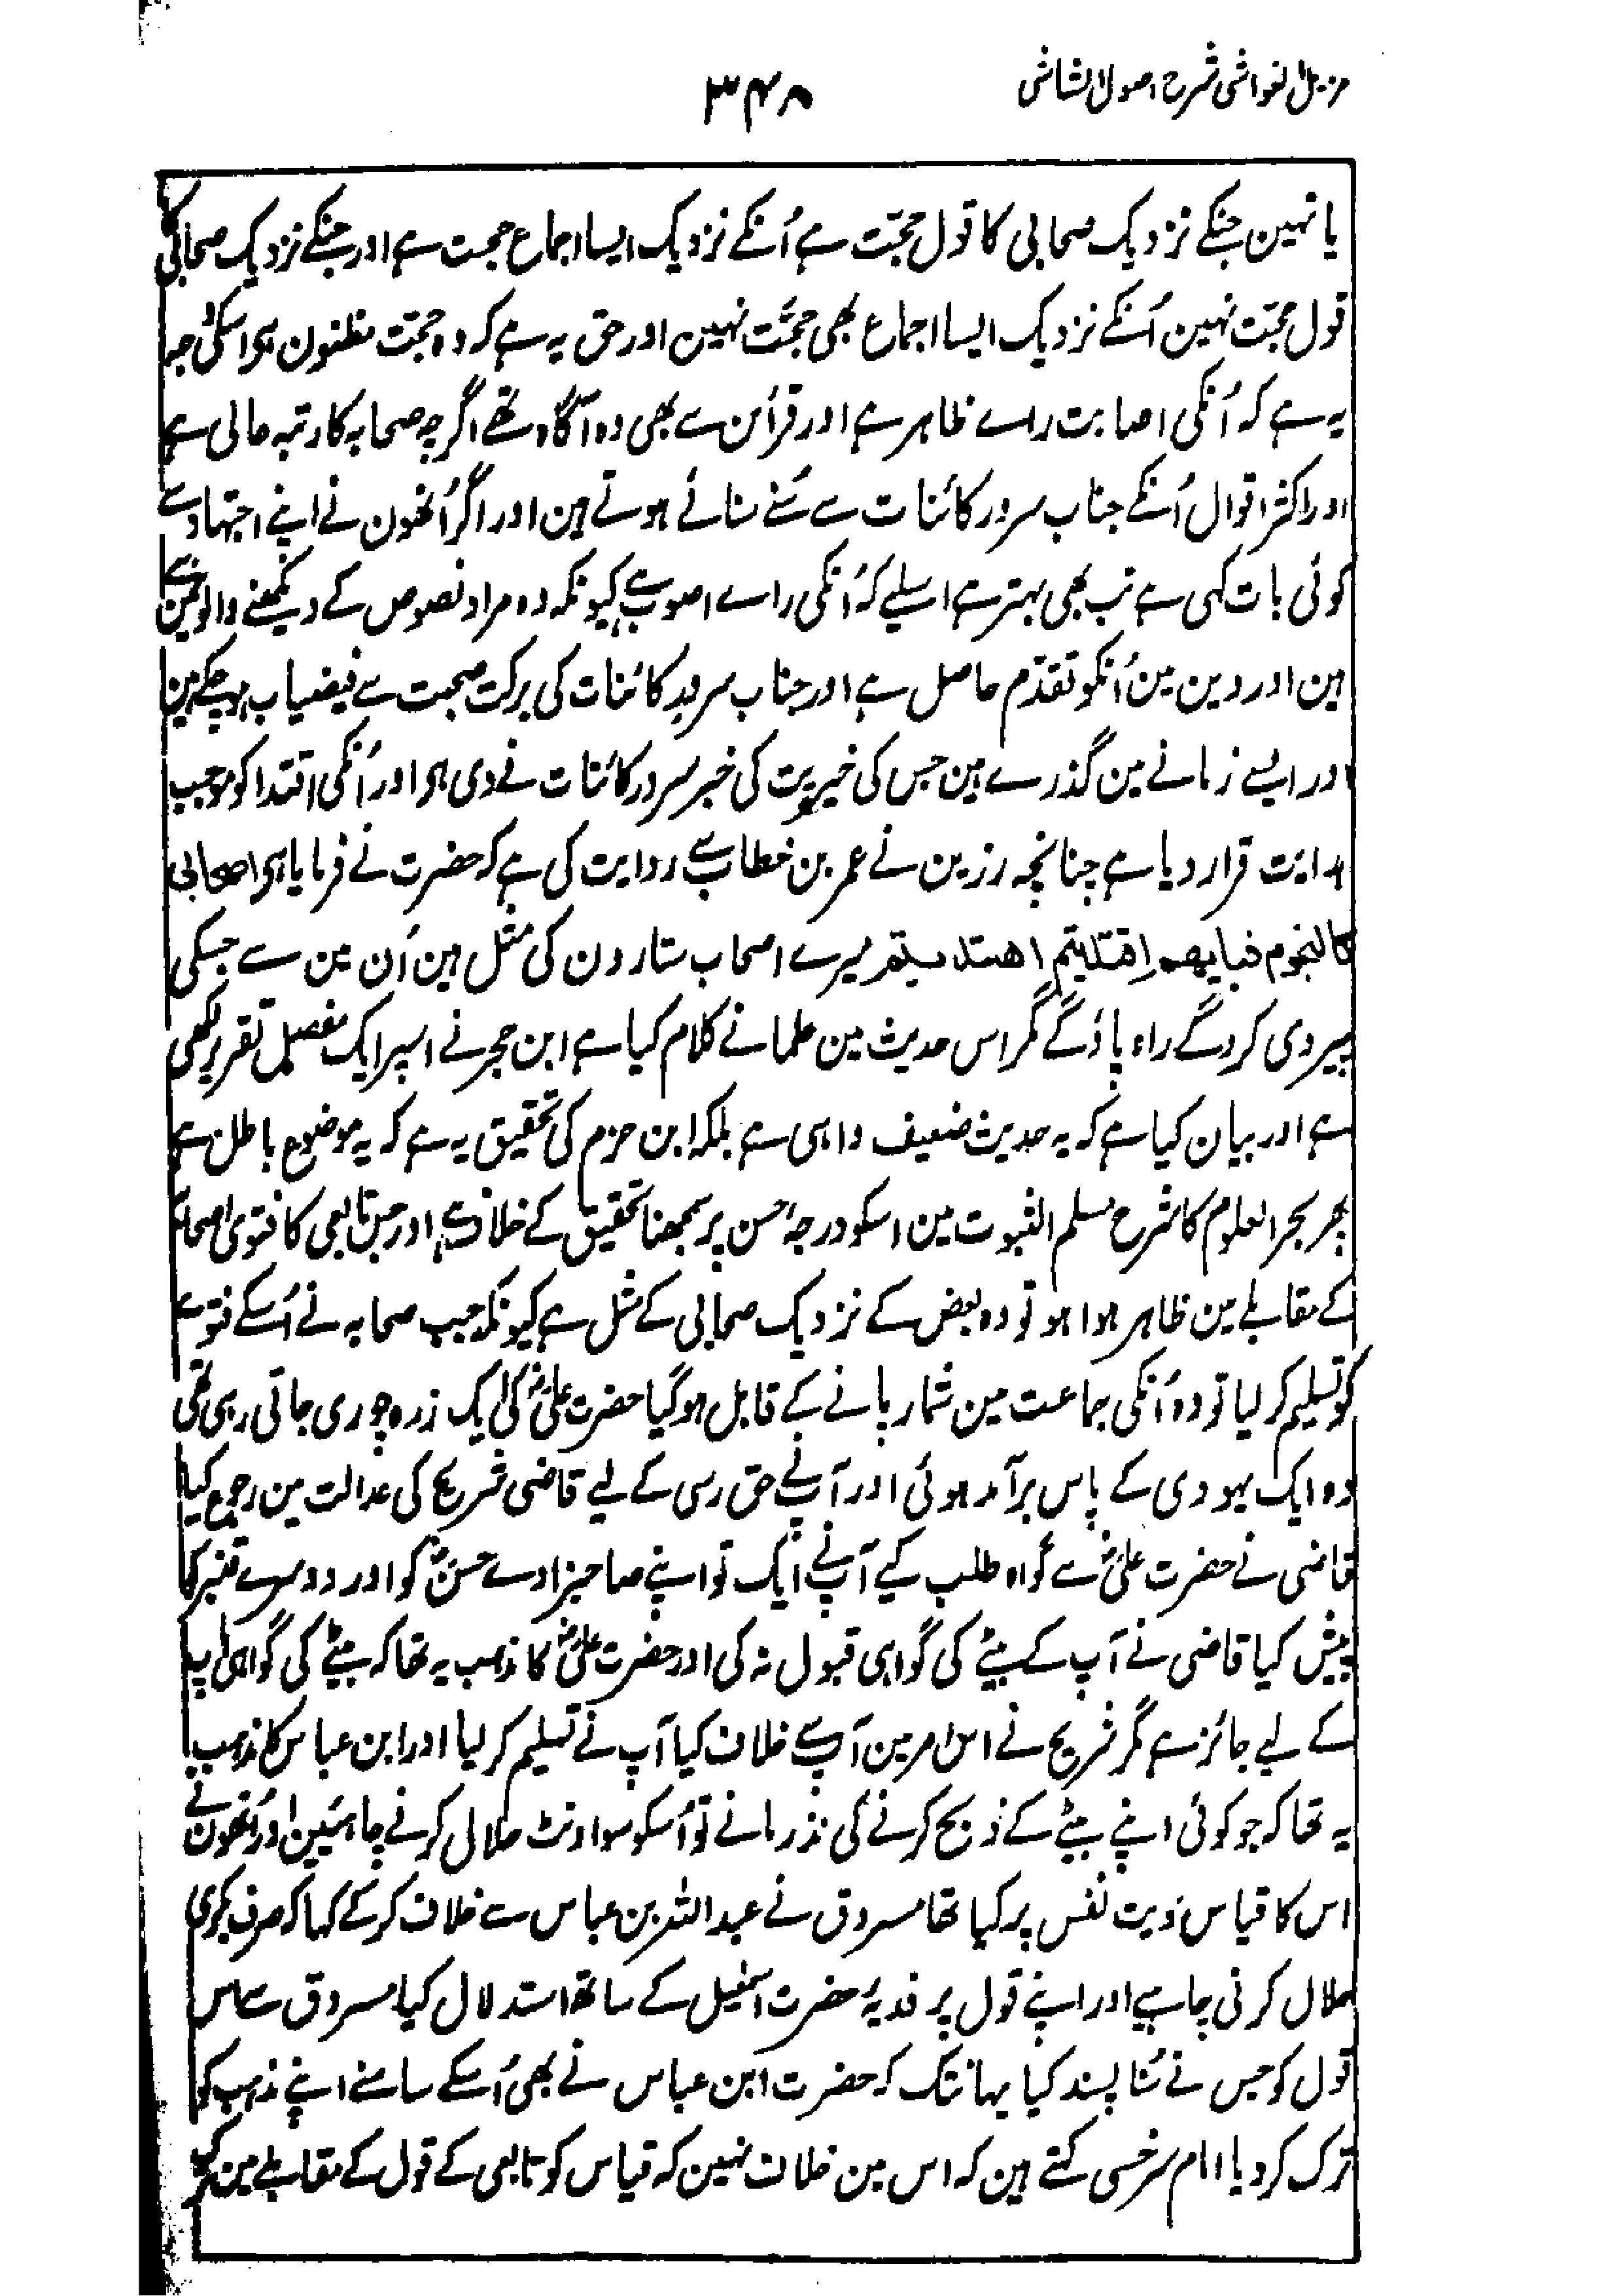 مزیل الغواشی شرح اصول الشاشی
۳۴۸
یا نہین جنکے نزدیک صحابی کا قول حجّت ہے اُنکے نزدیک ایسا اجماع حجت ہے اور جنکے نزدیک صحابی کا
قول حجّت نہین اُنکے نزدیک ایسا اجماع بھی حجّت نہین اور حق یہ ہے کہ وہ حجّت مظنون ہے اسکی وجہ
یہ ہے کہ اُنکی اصابت راے ظاہر ہے اور قرائن سے بھی وہ آگاہ تھے اگرچہ صحابہ کا رتبہ عالی ہے
اور اکثر اقوال اُنکے جناب سرور کائنات سے سُنے سنائے ہوتے ہین اور اگر اُنھون نے اپنے اجتہاد سے
کوئی بات کہی ہے تب بھی بہتر ہے اسلیے کہ اُنکی راے اصوب ہے کیونکہ وہ مراد نصوص کے دیکھنے والونمین سے
ہین اور دین مین اُنکو تقدّم حاصل ہے اور جناب سرورِ کائنات کی برکت صحبت سے فیضیاب ہوچکے ہین
اور ایسے زمانے مین گذرے ہین جس کی خیریت کی خبر سرور کائنات نے دی ہے اور اُنکی اقتدا کو موجب
ہدایت قرار دیا ہے چنانچہ رزین نے عمر بن خطاب سے روایت کی ہے کہ حضرت نے فرمایا ہے اصحابی
کالنجوم فبایھم اقتدیتم اھتدیتم میرے اصحاب ستارون کی مثل ہین اُن مین سے جسکی
پیروی کروگے راہ پاؤگے مگر اس حدیث مین علما نے کلام کیا ہے ابن حجر نے اسپر ایک مفصل تقریر لکھی
ہے اور بیان کیا ہے کہ یہ حدیث ضعیف واہی ہے بلکہ ابن حزم کی تحقیق یہ ہے کہ یہ موضوع باطل ہے
پھر بحر العلوم کا شرح مسلم الثبوت مین اسکو درجۂ حسن پر سمجھنا تحقیق کے خلاف ہے اور جس تابعی کا فتوی صحابہ
کے مقابلے مین ظاہر ہوا ہو تو وہ بعض کے نزدیک صحابی کے مثل ہے کیونکہ جب صحابہ نے اُسکے فتوے
کو تسلیم کر لیا تو وہ اُنکی جماعت مین شمار پانے کے قابل ہوگیا حضرت علیؓ کی ایک زرہ چوری جاتی رہی تھی
وہ ایک یہودی کے پاس برآمد ہوئی اور آپنے حق رسی کے لیے قاضی شریح کی عدالت مین رجوع کیا
قاضی نے حضرت علیؓ سے گواہ طلب کیے آپنے ایک تو اپنے صاحبزادے حسنؓ کو اور دوسرے قنبر کو
پیش کیا قاضی نے آپ کے بیٹے کی گواہی قبول نہ کی اور حضرت علیؓ کا مذہب یہ تھا کہ بیٹے کی گواہی باپ
کے لیے جائز ہے مگر شریح نے اس امر مین آپکے خلاف کیا آپ نے تسلیم کر لیا اور ابن عباس کا مذہب
یہ تھا کہ جو کوئی اپنے بیٹے کے ذبح کرنے کی نذر مانے تو اُسکو سو اونٹ حلال کرنے چاہئیین اور اُنھون نے
اس کا قیاس دیت نفس پر کیا تھا مسروق نے عبد اللہ بن عباس سے خلاف کرکے کہا کہ صرف بکری
حلال کرنی چاہیے اور اپنے قول پر فدیۂ حضرت اسمٰعیل کے ساتھ استدلال کیا مسروق سے اس
قول کو جس نے سُنا پسند کیا یہانتک کہ حضرت ابن عباس نے بھی اُسکے سامنے اپنے مذہب کو
ترک کر دیا امام سرخسی کہتے ہین کہ اس مین خلاف نہین کہ قیاس کو تابعی کے قول کے مقابلے مین